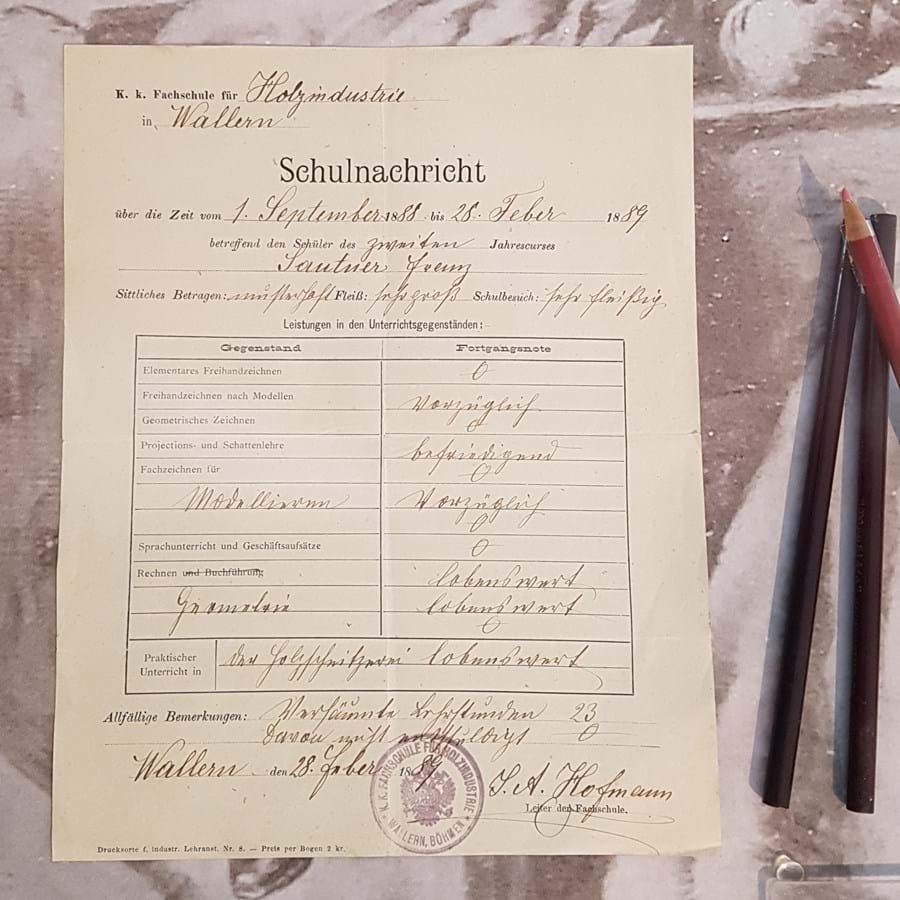 K. k. Fachschule für Holzindustrie
in Wallern
Schulnachricht
über die Zeit vom 1. September 1888 bis 28. Feber 1889
betreffend den Schüler des zweiten Jahrescurses
Sautner Franz
Sittliches Betragen: musterhaft Fleiß: sehr groß Schulbesuch: sehr fleißig
Leistungen in den Unterrichtsgegenständen:
Gegenstand Fortgangsnote
Elementares Freihandzeichnen 0
Freihandzeichnen nach Modellen vorzüglich
Geometrisches Zeichnen 0
Projections- und Schattenlehre befriedigend
Fachzeichnen für 0
Modellieren vorzüglich
0
Sprachunterricht und Geschäftsaufsätze 0
Rechnen und Buchführung lobenswert
Geometrie lobenswert
0
Praktischer Unterricht in der Holzschnitzerei lobenswert
Allfällige Bemerkungen: Versäumte Lehrstunden 23
davon nicht entschuldigt 0
Wallern den 28. Feber 1889
J. A. Hofmann
Leiter der Fachschule.
K. K. FACHSCHULE FÜR HOLZINDUSTRIE
WALLERN, BÖHMEN
Drucksorte f. industr. Lehranst. Nr. 8. — Preis per Bogen 2 kr.